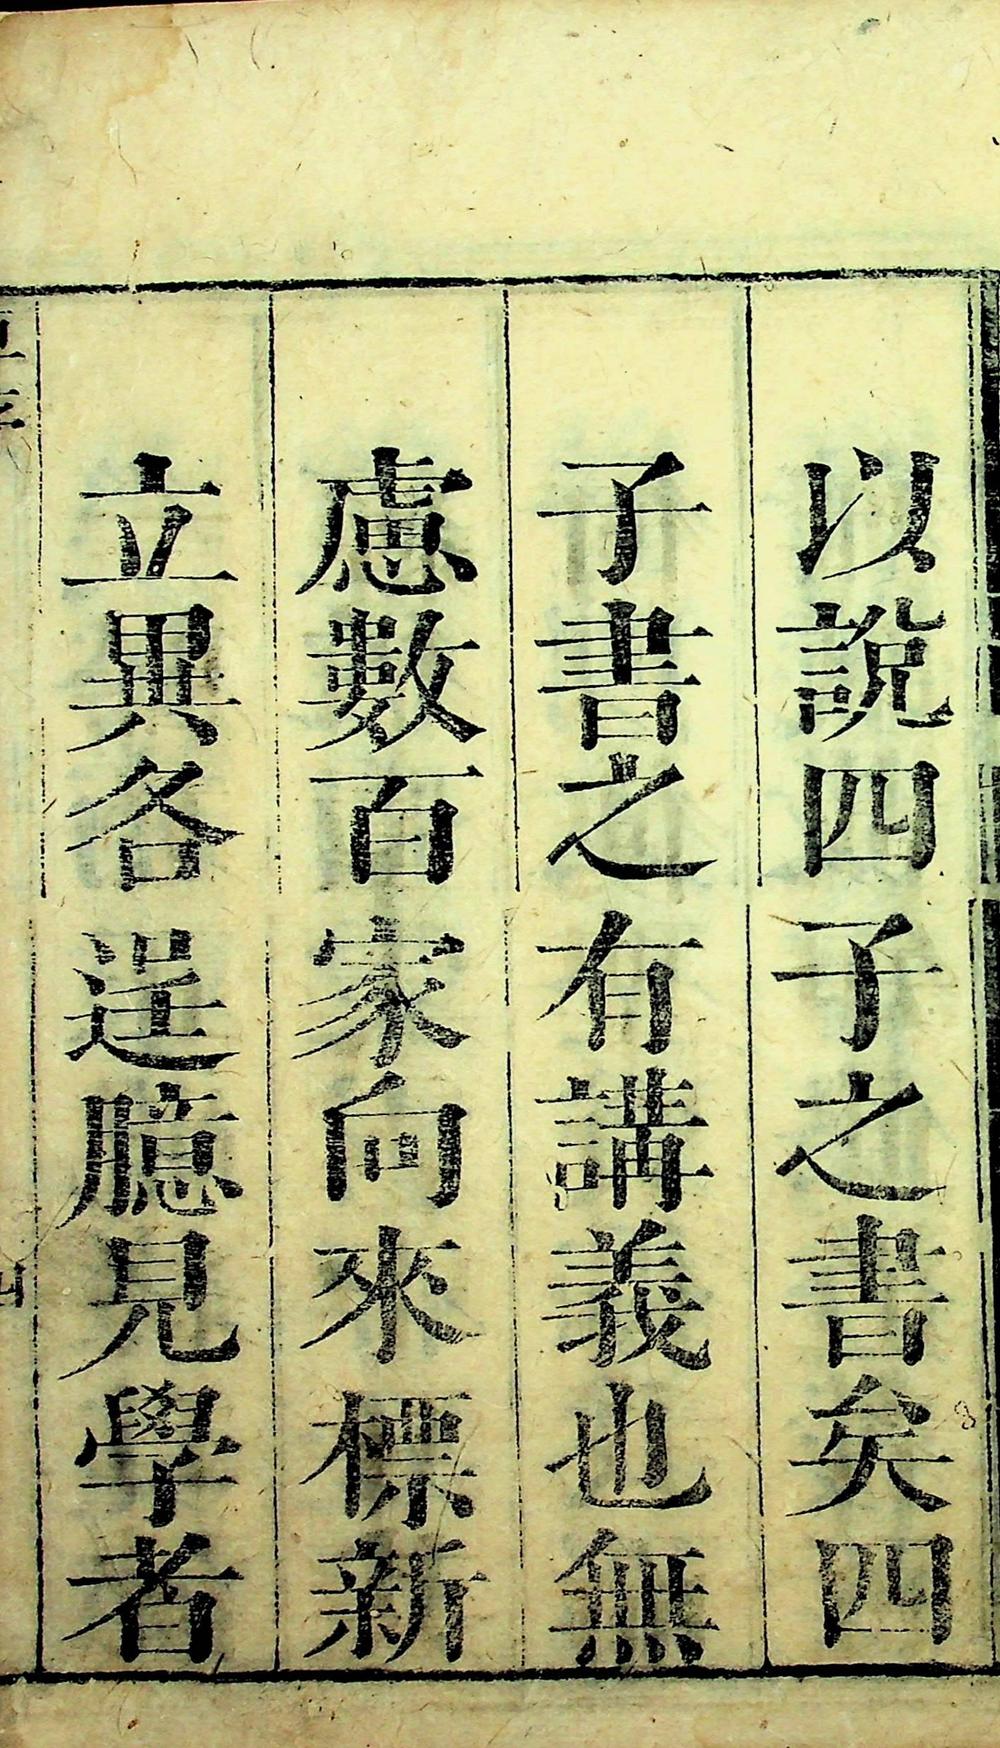 以說四子之書矣四
子書之有講義也無
慮數百家向來標新
立異各逞臆見學者